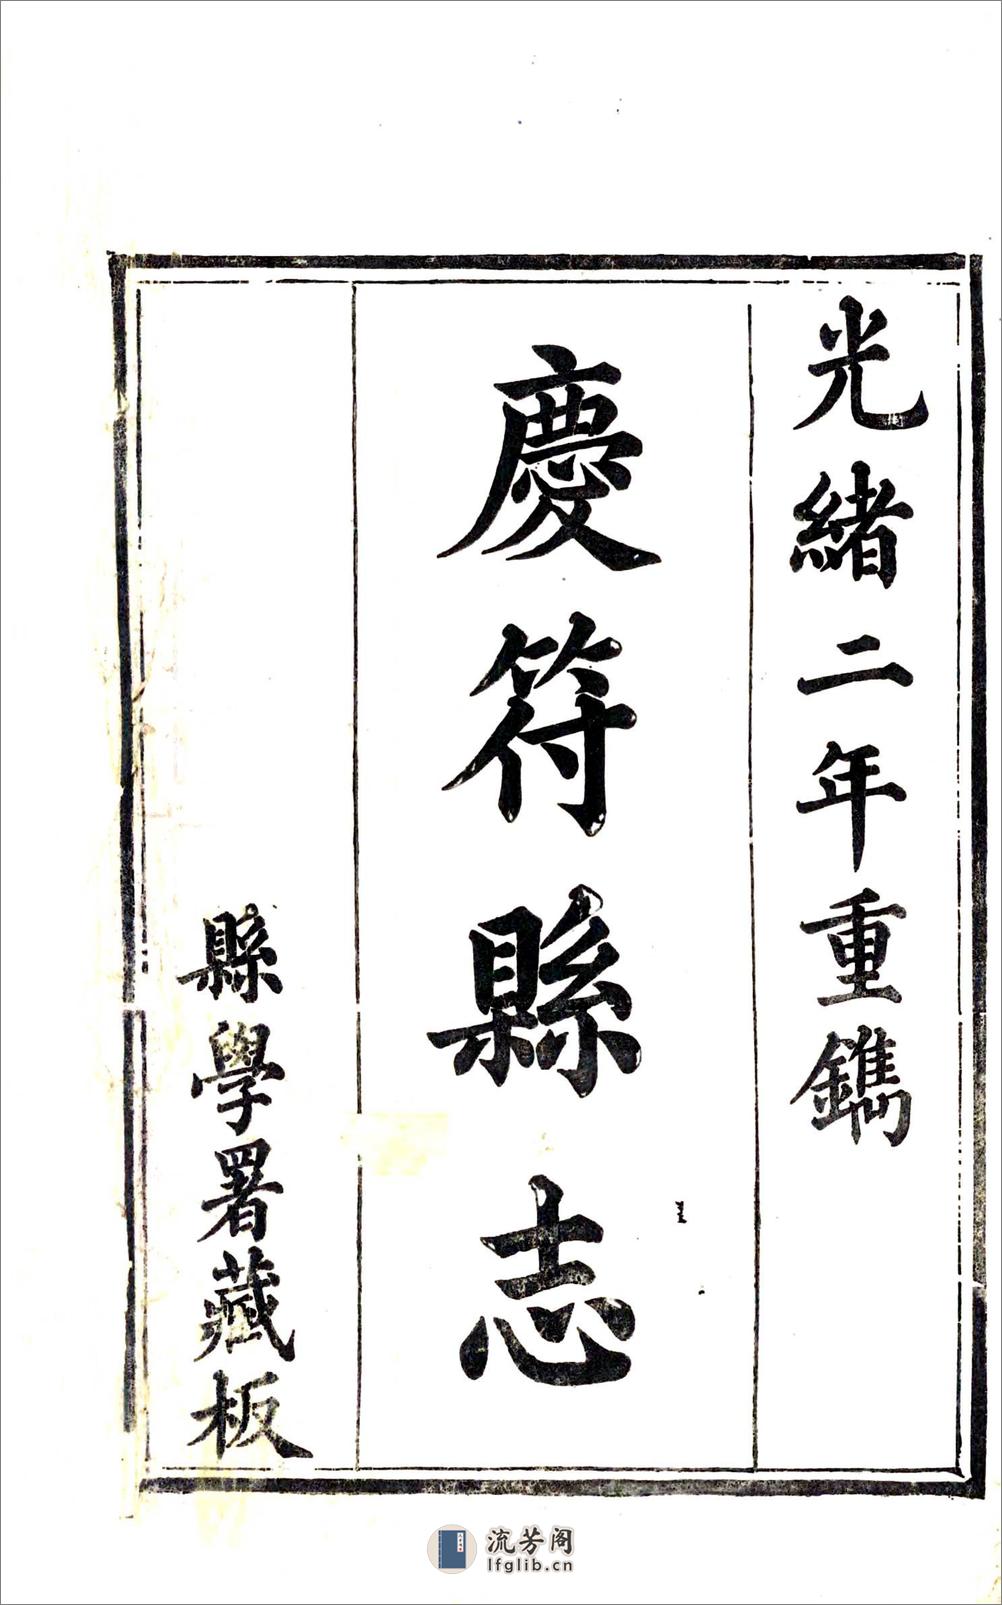 光緒二年重鐫
慶符縣志
縣學署藏板
流芳阁
lfglib.cn